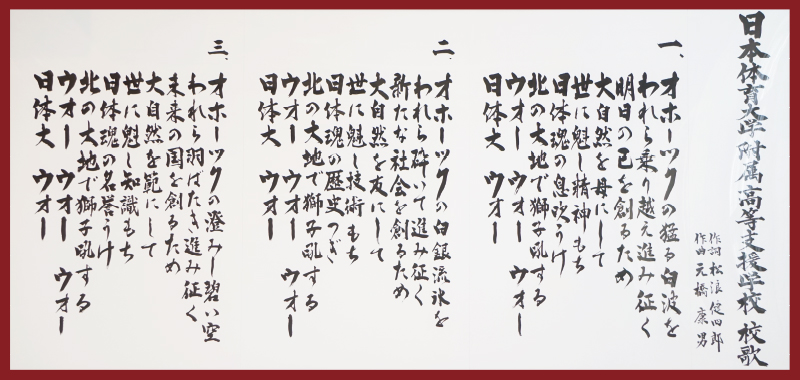 日本体育大学附属高等支援学校 校歌
作詞 松浪健四郎
作曲 元橋康男
一、
オホーツクの猛る白波を
われら乗り越え進み征く
明日の己を創るため
大自然を母にして
世に魁し精神もち
日体魂の息吹うけ
北の大地で獅子吼する
ウオー ウオー ウオー
日体大 ウオー
二、
オホーツクの白銀流氷を
われら砕いて進み征く
新たな社会を創るため
大自然を友にして
世に魁し技術もち
日体魂の歴史つぎ
北の大地で獅子吼する
ウオー ウオー ウオー
日体大 ウオー
三、
オホーツクの澄みし碧い空
われら羽ばたき進み征く
未来の国を創るため
大自然を範にして
世に魁し知識もち
日体魂の名誉うけ
北の大地で獅子吼する
ウオー ウオー ウオー
日体大 ウオー